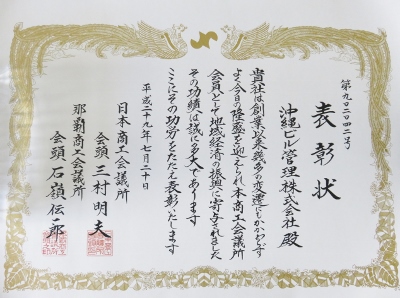 第九〇二〇四二号
表彰状
沖縄ビル管理株式会社殿
貴社は創業以来幾多の変遷にもかかわらず
よく今日の隆盛を迎えられ本商工会議所
会員として地域経済の振興に寄与されました
その功績は誠に多大であります
ここにその功労をたたえ表彰いたします
平成二十九年七月二十日
日本商工会議所
会頭 三村明夫
那覇商工会議所
会頭 石嶺伝一郎